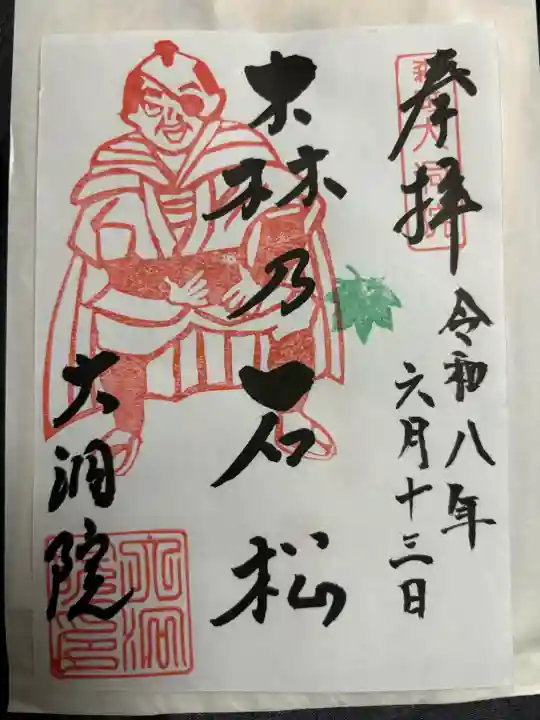 奉拝
令和八年
六月十三日
森乃石松
大洞院